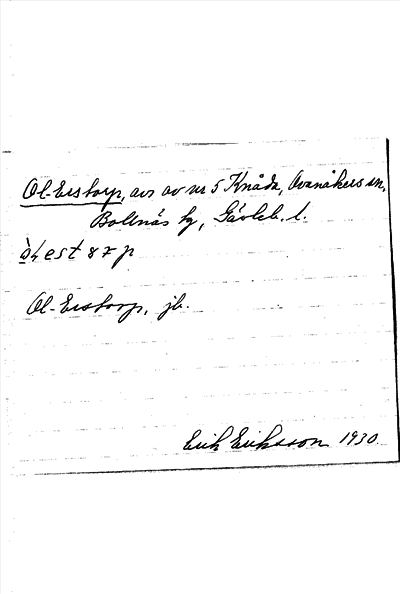 Ol-Erstorp, avs av nr 5 Knåda, Ovanåkers sn,
Bollnäs tg, Gävleb. l.
Ol-Erstorp, jb.
Erik Eriksson 1930